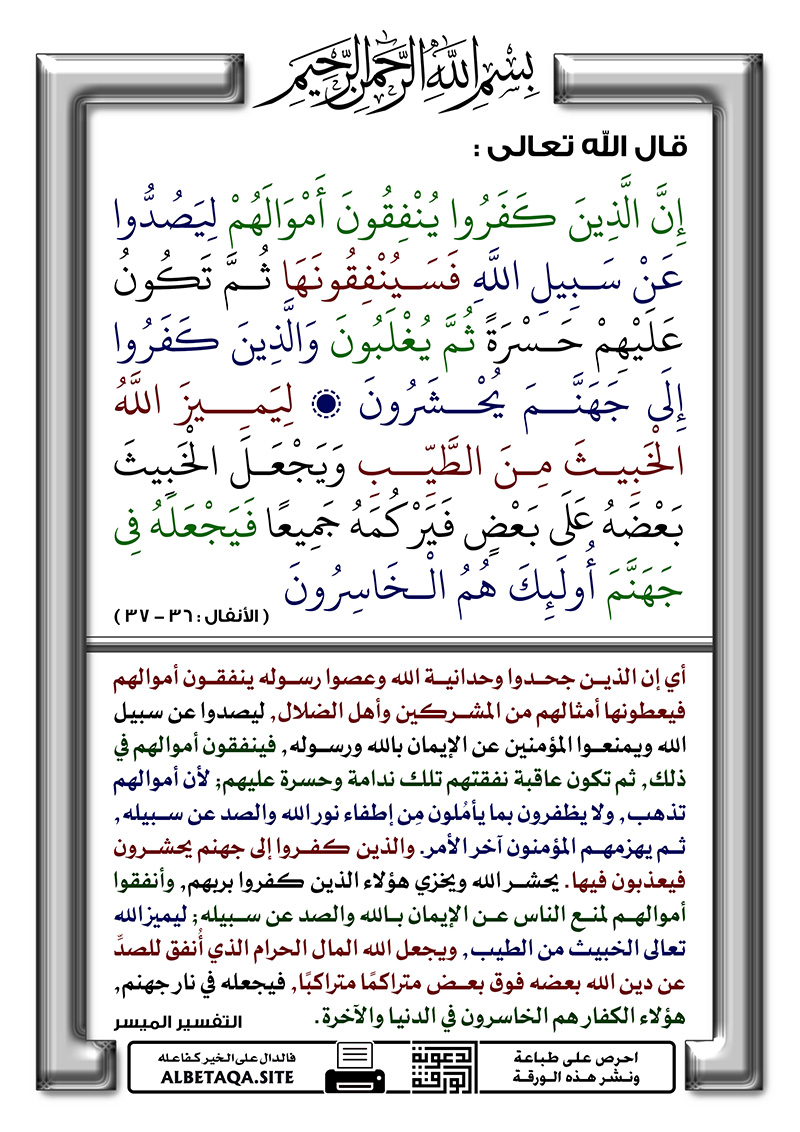 بِسْمِ اللَّهِ الرَّحْمَنِ الرَّحِيمِ
قال الله تعالى :
إِنَّ الَّذِينَ كَفَرُوا يُنْفِقُونَ أَمْوَالَهُمْ لِيَصُدُّوا
عَنْ سَبِيلِ اللَّهِ فَسَيُنْفِقُونَهَا ثُمَّ تَكُونُ
عَلَيْهِمْ حَسْرَةً ثُمَّ يُغْلَبُونَ وَالَّذِينَ كَفَرُوا
إِلَى جَهَنَّمَ يُحْشَرُونَ لِيَمِيزَ اللَّهُ
الْخَبِيثَ مِنَ الطَّيِّبِ وَيَجْعَلَ الْخَبِيثَ
بَعْضَهُ عَلَى بَعْضٍ فَيَرْكُمَهُ جَمِيعًا فَيَجْعَلَهُ فِي
جَهَنَّمَ أُولَئِكَ هُمُ الْخَاسِرُونَ
( الأنفال : ٣٦ – ٣٧ )
أي إن الذين جحدوا وحدانية الله وعصوا رسوله ينفقون أموالهم
فيعطونها أمثالهم من المشركين وأهل الضلال, ليصدوا عن سبيل
الله ويمنعوا المؤمنين عن الإيمان بالله ورسوله, فينفقون أموالهم في
ذلك, ثم تكون عاقبة نفقتهم تلك ندامة وحسرة عليهم; لأن أموالهم
تذهب, ولا يظفرون بما يأمُلون مِن إطفاء نور الله والصد عن سبيله,
ثم يهزمهم المؤمنون آخر الأمر. والذين كفروا إلى جهنم يحشرون
فيعذبون فيها. يحشر الله ويخزي هؤلاء الذين كفروا بربهم, وأنفقوا
أموالهم لمنع الناس عن الإيمان بالله والصد عن سبيله; ليميز الله
تعالى الخبيث من الطيب, ويجعل الله المال الحرام الذي أُنفق للصدِّ
عن دين الله بعضه فوق بعض متراكمًا متراكبًا, فيجعله في نار جهنم,
هؤلاء الكفار هم الخاسرون في الدنيا والآخرة.
التفسير الميسر
احرص على طباعة
ونشر هذه الورقة
الورقة الدعوية
فالدال على الخير كفاعله
ALBETAQA.SITE